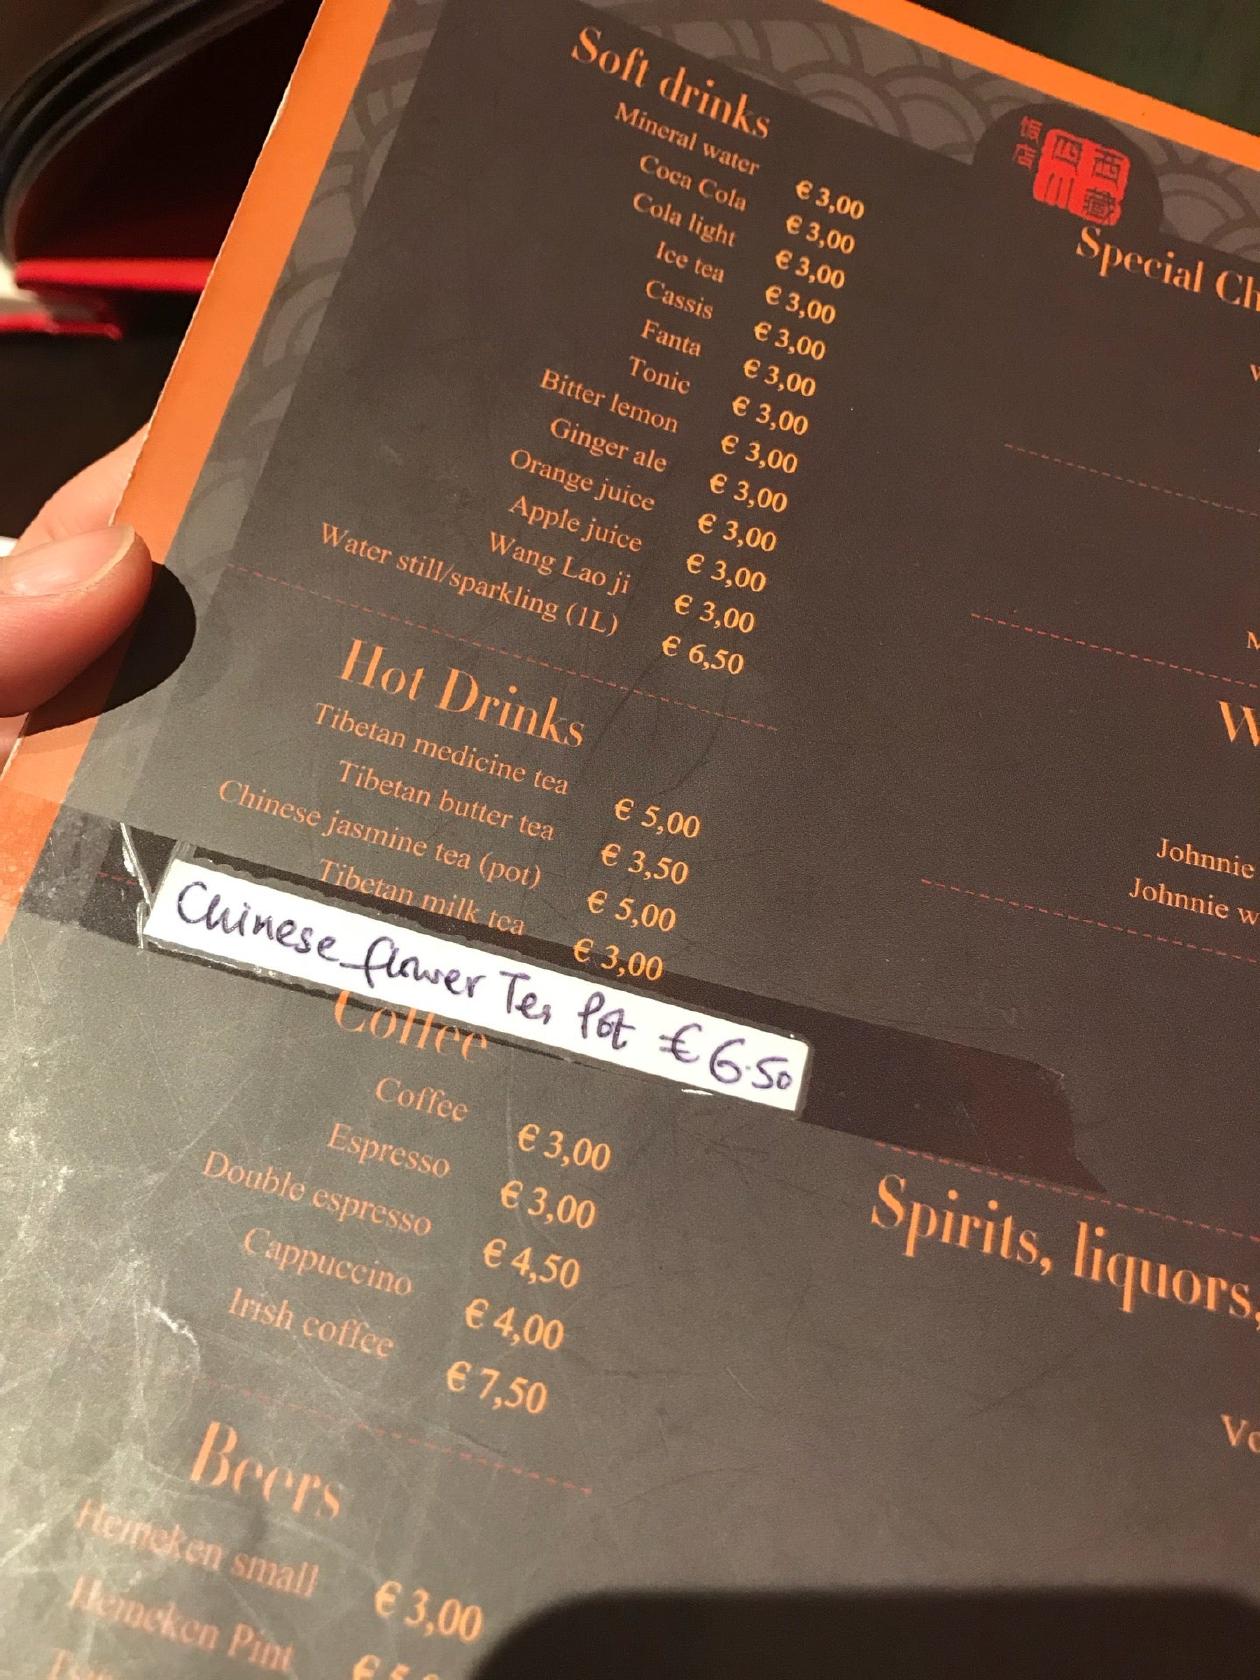 Soft drinks
Mineral water € 3,00
Coca Cola € 3,00
Cola light € 3,00
Ice tea € 3,00
Cassis € 3,00
Fanta € 3,00
Tonic € 3,00
Bitter lemon € 3,00
Ginger ale € 3,00
Orange juice € 3,00
Apple juice € 3,00
Wang Lao ji € 3,00
Water still/sparkling (1L) € 6,50
Hot Drinks
Tibetan medicine tea € 5,00
Tibetan butter tea € 3,50
Chinese jasmine tea (pot) € 5,00
Tibetan milk tea € 3,00
Chinese flower Tea Pot € 6.50
Coffee
Coffee € 3,00
Espresso € 3,00
Double espresso € 4,50
Cappuccino € 4,00
Irish coffee € 7,50
Beers
Heineken small € 3,00
Heineken Pint
饭店
西藏
四川
Special
Johnnie
Johnnie
Spirits, liquors,